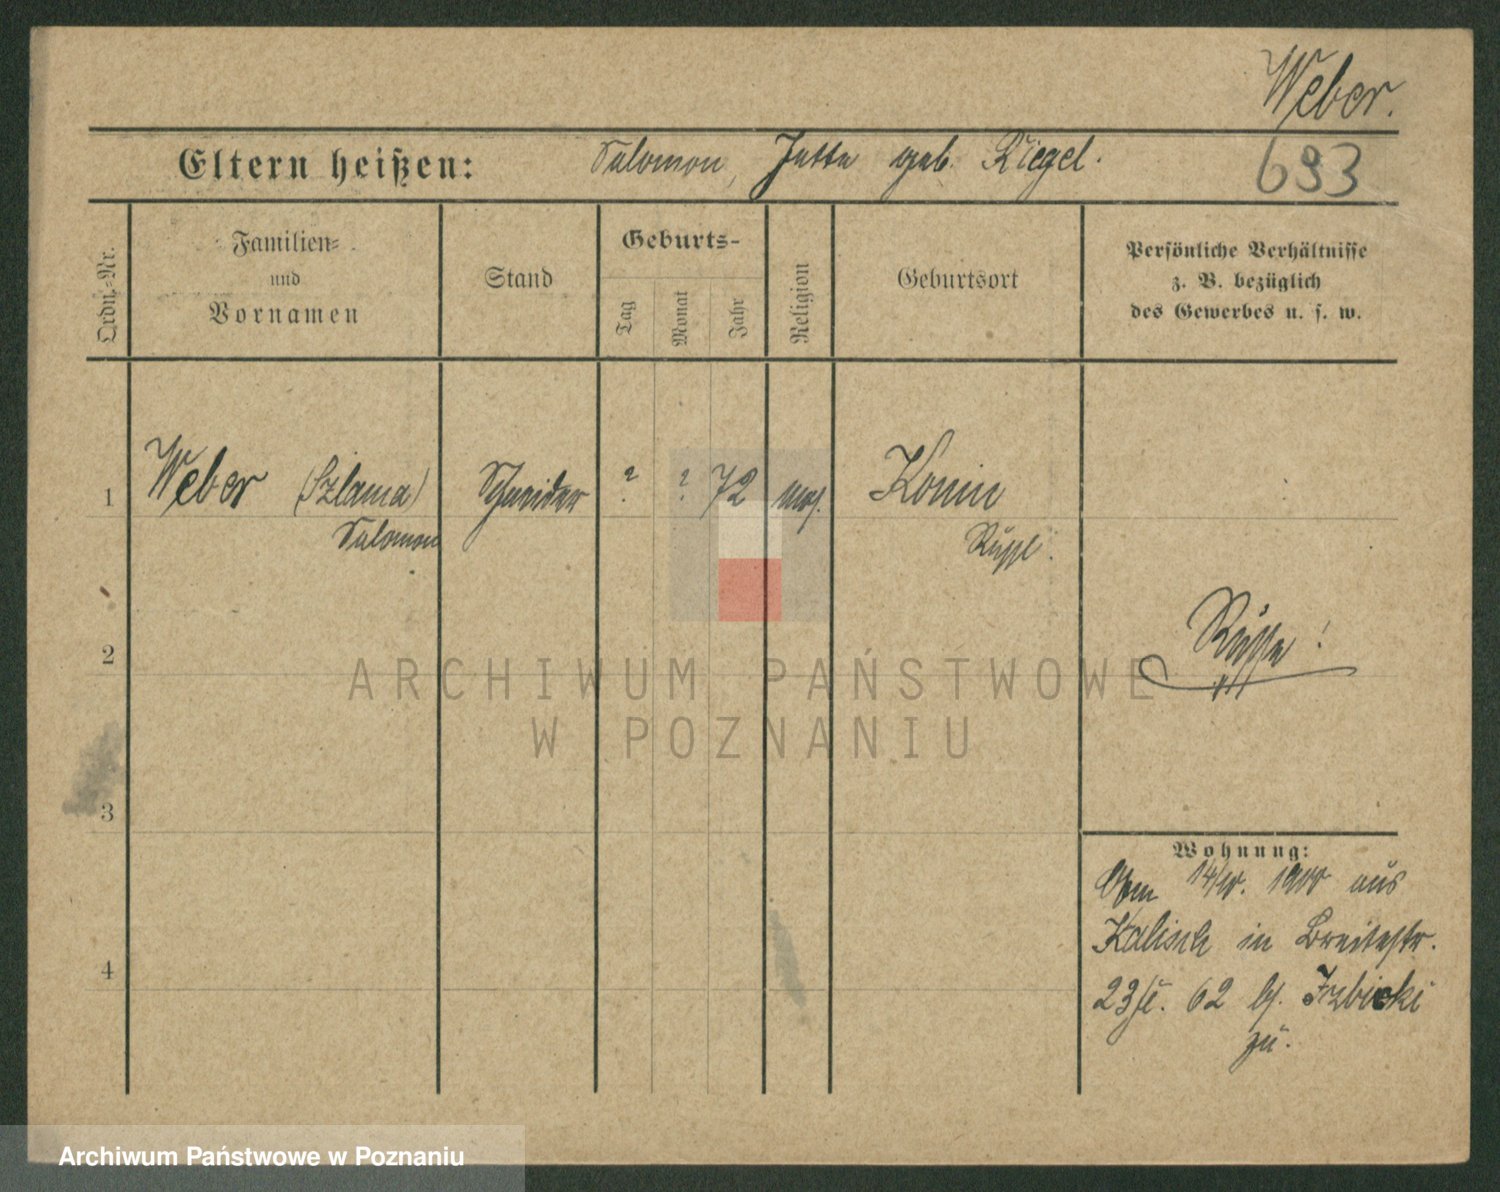 Weber.
Eltern heißen: Salomon, Jette geb. Riegel.
693
Ordn.-Nr.
Familien-
und
Vornamen
Stand
Geburts-
Tag
Monat
Jahr
Religion
Geburtsort
Persönliche Verhältnisse
z. B. bezüglich
des Gewerbes u. s. w.
1 Weber (Szlama) Schneider ? ? 72 mos. Konin
Salomon
Russe!
2
ARCHIWUM PAŃSTWOWE
W POZNANIU
3
Wohnung:
14/ 1900 aus
Kalisch in Breitestr.
4
23/I. 62 b/. Izbicki
zu.
Archiwum Państwowe w Poznaniu